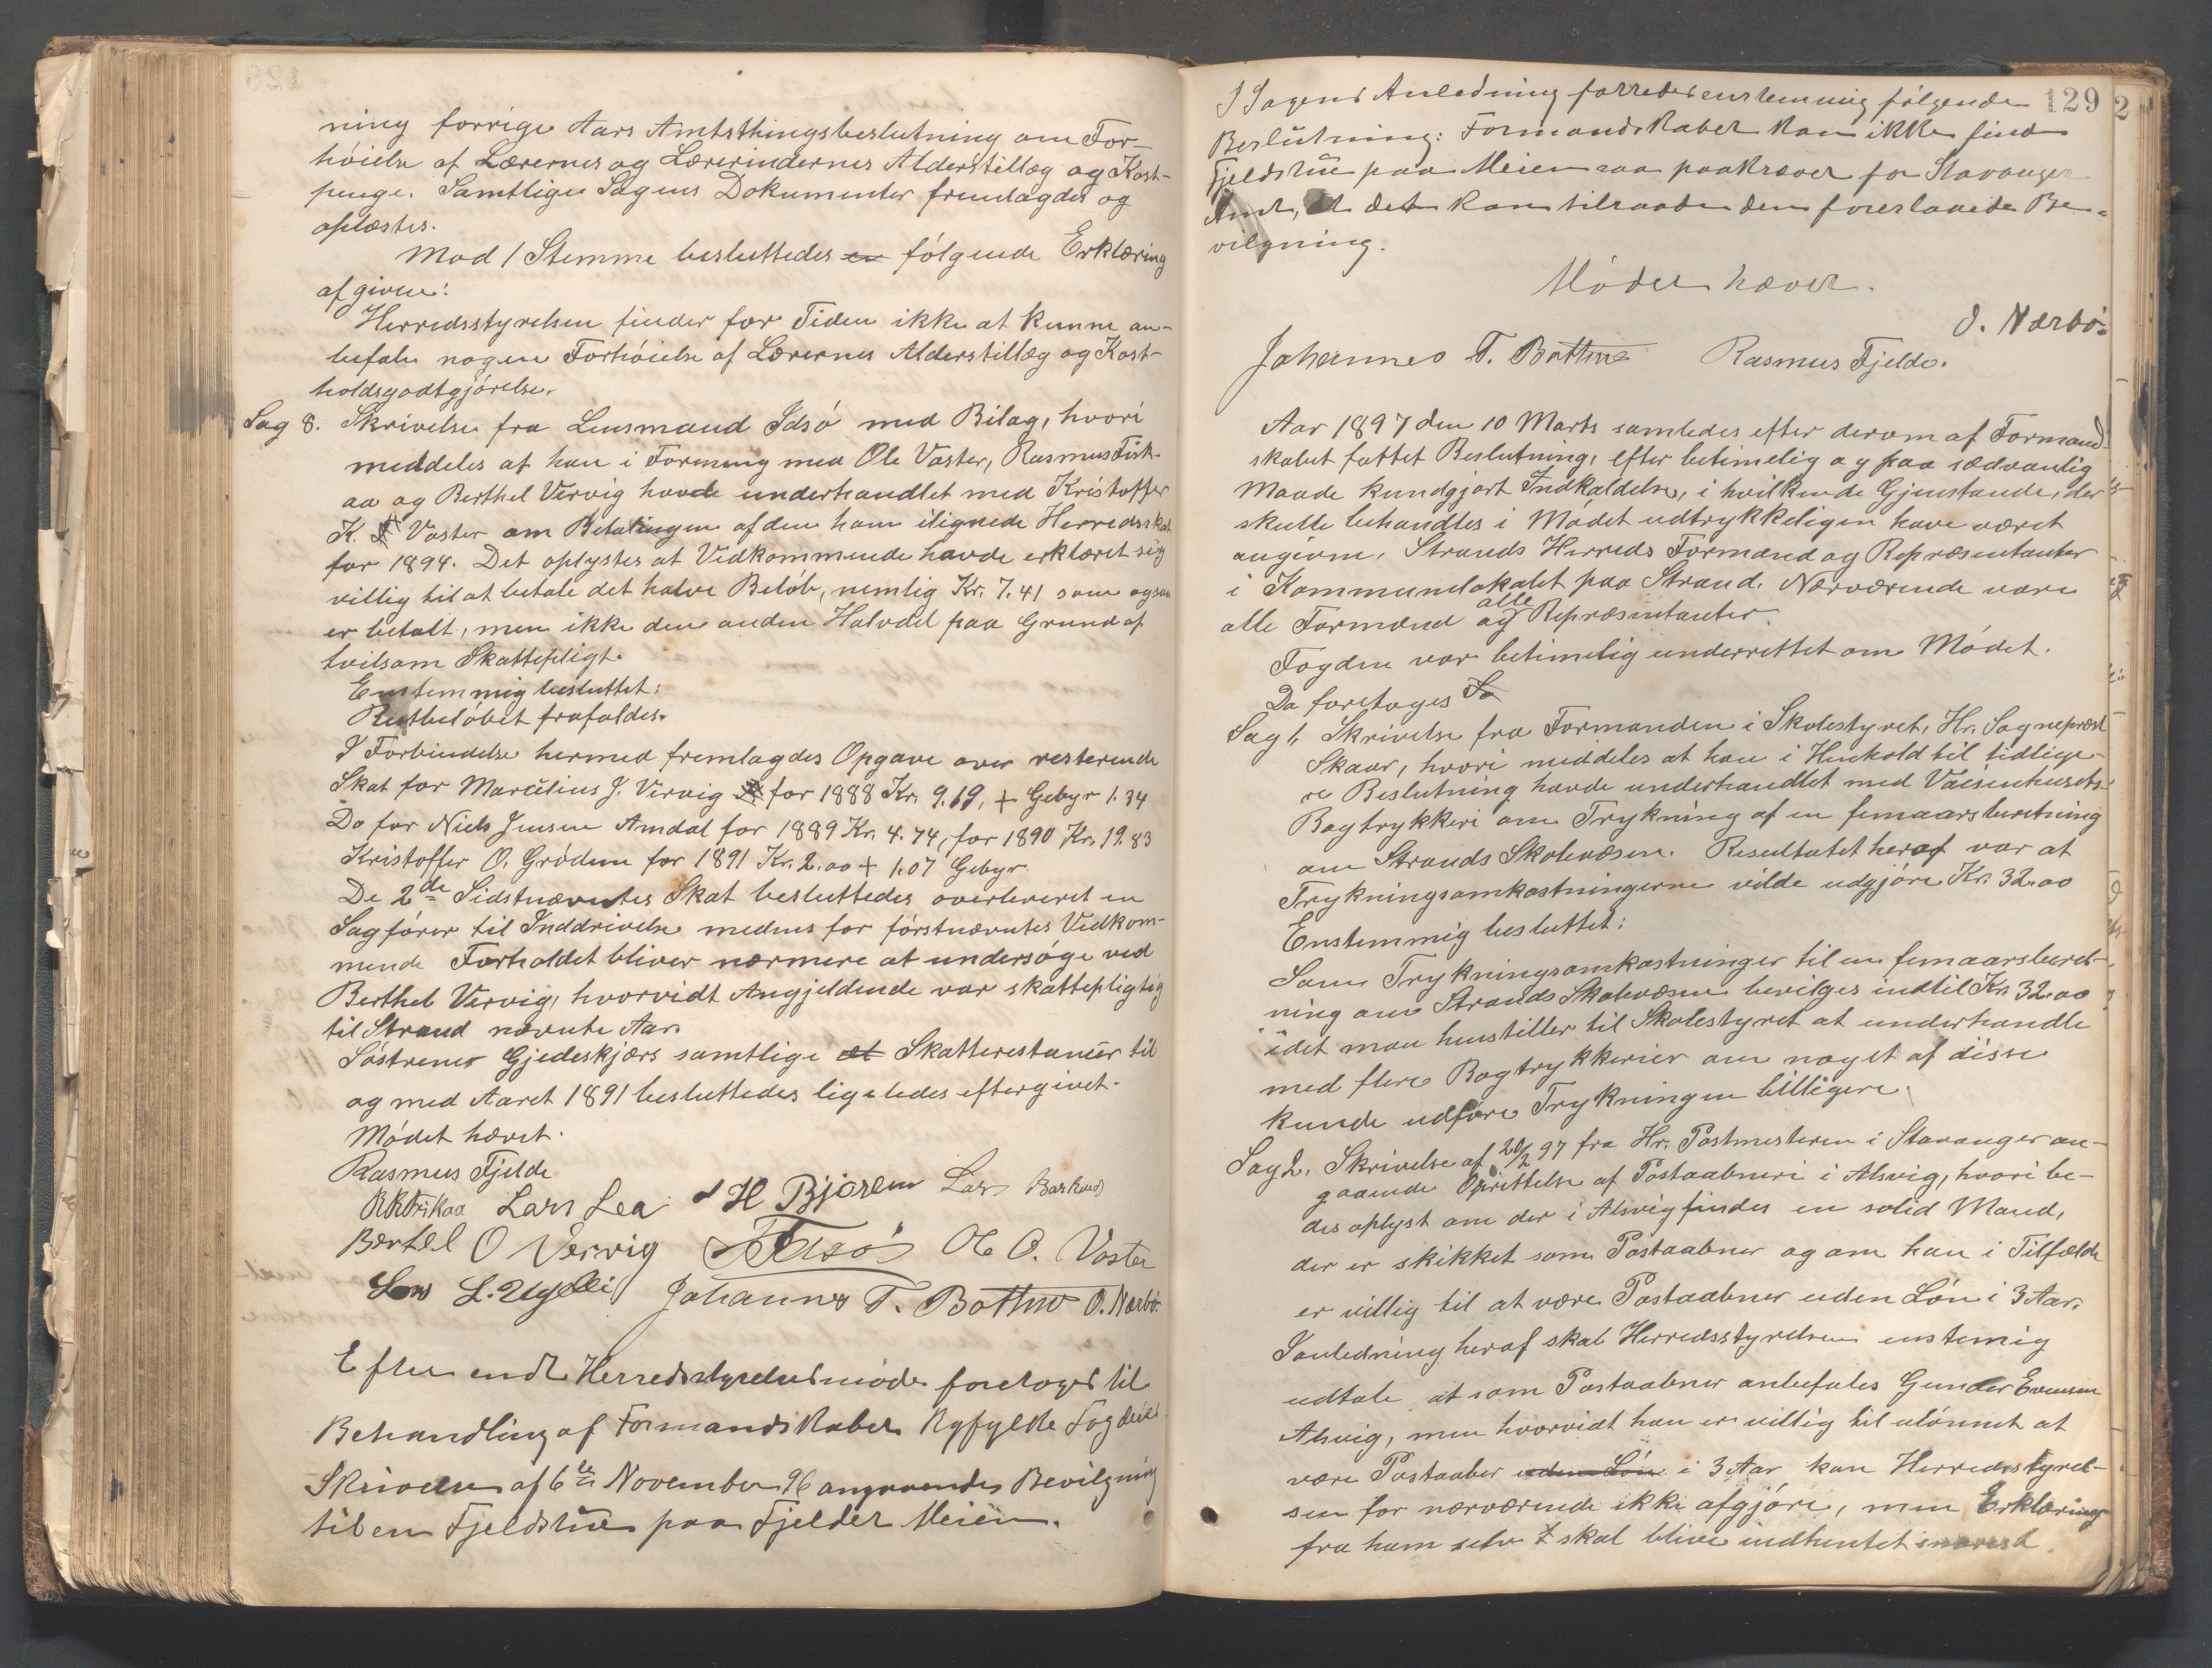 ning forrige Aars Amtsthingsbeslutning om For-
höielse af Lærernes og Lærerindernes Alderstillæg og Kost-
penge. Samtlige Sagens Dokumenter fremlagdes og
oplæstes.
Mod 1 Stemme besluttedes en følgende Erklæring
afgiven:
Herredsstyrelsen finder for Tiden ikke at kunne an-
befale nogen Forhöielse af Lærernes Alderstillæg og Kost-
holdsgodtgjörelse.
Sag 8. Skrivelse fra Lensmand Idsö med Bilag, hvori
meddeles at han i Forening med Ole Vaster, Rasmus Fisk-
aa og Berthel Vervig havde underhandlet med Kristoffer
K. Vaster om Betalingen af den ham ilignede Herredsskat
for 1894. Det oplystes at Vedkommende havde erklæret sig
villig til at betale det halve Belöb, nemlig Kr. 7.41 som ogsaa
er betalt, men ikke den anden Halvdel paa Grund af
tvilsom Skattepligt.
Enstemmig besluttet:
Restbelöbet frafaldes.
I Forbindelse hermed fremlagdes Opgave over resterende
Skat for Marcelius J. Vervig for 1888 Kr. 9.19, + Gebyr 1.34
Do for Niels Jensen Amdal for 1889 Kr. 4.74, for 1890 Kr. 19.83
Kristoffer O. Grödem for 1891 Kr. 2.00 + 1.07 Gebyr.
De 2de Sidstnævntes Skat besluttedes overleveret en
Sagförer til Inddrivelse medens for förstnævntes Vedkom-
mende Forholdet bliver nærmere at undersöge ved
Berthel Vervig, hvorvidt Angjeldende var skattepligtig
til Strand nævnte Aar.
Söstrenes Gjedeskjærs samtlige et Skatterestancer til
og med Aaret 1891 besluttedes ligeledes eftergivet.
Mödet hævet.
Rasmus Fjelde
Lars Lea H Bjoreim Lars Barkved
Bertel O Vervig Idsö Ole O. Voster
Lars L. Johannes T. Bothne O. Nærbö
Efter endt Herredsstyrelsesmöde foretoges til
Behandling af Formandskabet Ryfylke Fogderis
Skrivelse af 6te November 96 angaaende Bevilgning
til en Fjeldstue paa Fjeldet Meien.
129
2
I Sagens Anledning fattedes enstemmig fölgende
Beslutning: Formandskabet kan ikke finde
Fjeldstue paa Meien saa paakrævet for Stavanger
Amt, at det kan tilraade den foreslaaede Be-
vilgning.
Mödet hævet.
O. Nærbö
Johannes T. Bothne Rasmus Fjelde.
Aar 1897 den 10 Marts samledes efter derom af Formand-
skabet fattet Beslutning, efter betimelig og paa sædvanlig
Maade kundgjort Indkaldelse, i hvilken de Gjenstande, der
skulle behandles i Mödet udtrykkeligen have været
angivne, Strands Herreds Formænd og Repræsentanter
i Kommunelokalet paa Strand. Nærværende vare
alle Formænd og alle Repræsentanter.
Fogden var betimelig underrettet om Mödet.
Da foretoges Sa
Sag 1. Skrivelse fra Formanden i Skolestyret, Hr. Sognepræst
Skaar, hvori meddeles at han i Henhold til tidlige-
re Beslutning havde underhandlet med Vaisenhusets
Bogtrykkeri om Trykning af en femaarsberetning
om Strands Skolevæsen. Resultatet heraf var at
Trykningsomkostningerne vilde udgjöre Kr. 32.00
Enstemmig besluttet:
Som Trykningsomkostninger til en femaarsberet-
ning om Strands Skolevæsen bevilges indtil Kr. 32.00
idet man henstiller til Skolestyret at underhandle
med flere Bogtrykkerier om noget af disse
kunde udföre Trykningen billigere.
Sag 2. Skrivelse af 20/2 97 fra Hr. Postmesteren i Stavanger an-
gaaende Oprettelse af Postaabneri i Alsvig, hvori be-
des oplyst om der i Alsvig findes en solid Mand,
der er skikket som Postaabner og om han i Tilfælde
er villig til at være Postaabner uden Lön i 3 Aar.
I anledning heraf skal Herredsstyrelsen enstemig
udtale at som Postaabner anbefales Gunder Evensen
Alsvig, men hvorvidt han er villig til ulönnet at
være Postaaber uden Lön i 3 Aar kan Herredsstyrel-
sen for nærværende ikke afgjöre, men Erklæring
fra ham selv skal blive indhentet snarest